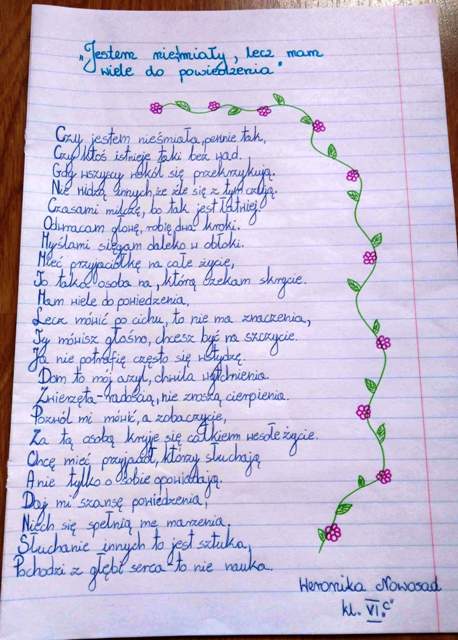 „Jestem nieśmiały, lecz mam
wiele do powiedzenia"
Czy jestem nieśmiała, pewnie tak,
Czy ktoś istnieje taki bez wad.
Gdy wszyscy wokół się przekrzykują.
Nie widzą innych, że źle się z tym czują.
Czasami milczę, bo tak jest łatwiej.
Odwracam głowę, robię dwa kroki.
Myślami sięgam daleko w obłoki.
Mieć przyjaciółkę na całe życie,
To taka osoba na, którą czekam skrycie.
Mam wiele do powiedzenia,
Lecz mówić po cichu, to nie ma znaczenia,
Ty mówisz głośno, chcesz być na szczycie.
Ja nie potrafię często się wstydzę.
Dom to mój azyl, chwila wytchnienia.
Zwierzęta-radością, nie znoszą cierpienia.
Pozwól mi mówić, a zobaczycie,
Za tą osobą kryje się całkiem wesołe życie.
Chcę mieć przyjaciół, którzy słuchają
A nie tylko o sobie opowiadają.
Daj mi szansę powiedzenia,
Niech się spełnią me marzenia.
Słuchanie innych to jest sztuka,
Pochodzi z głębi serca- to nie nauka.
Weronika Nowosad
kl. VI„c"